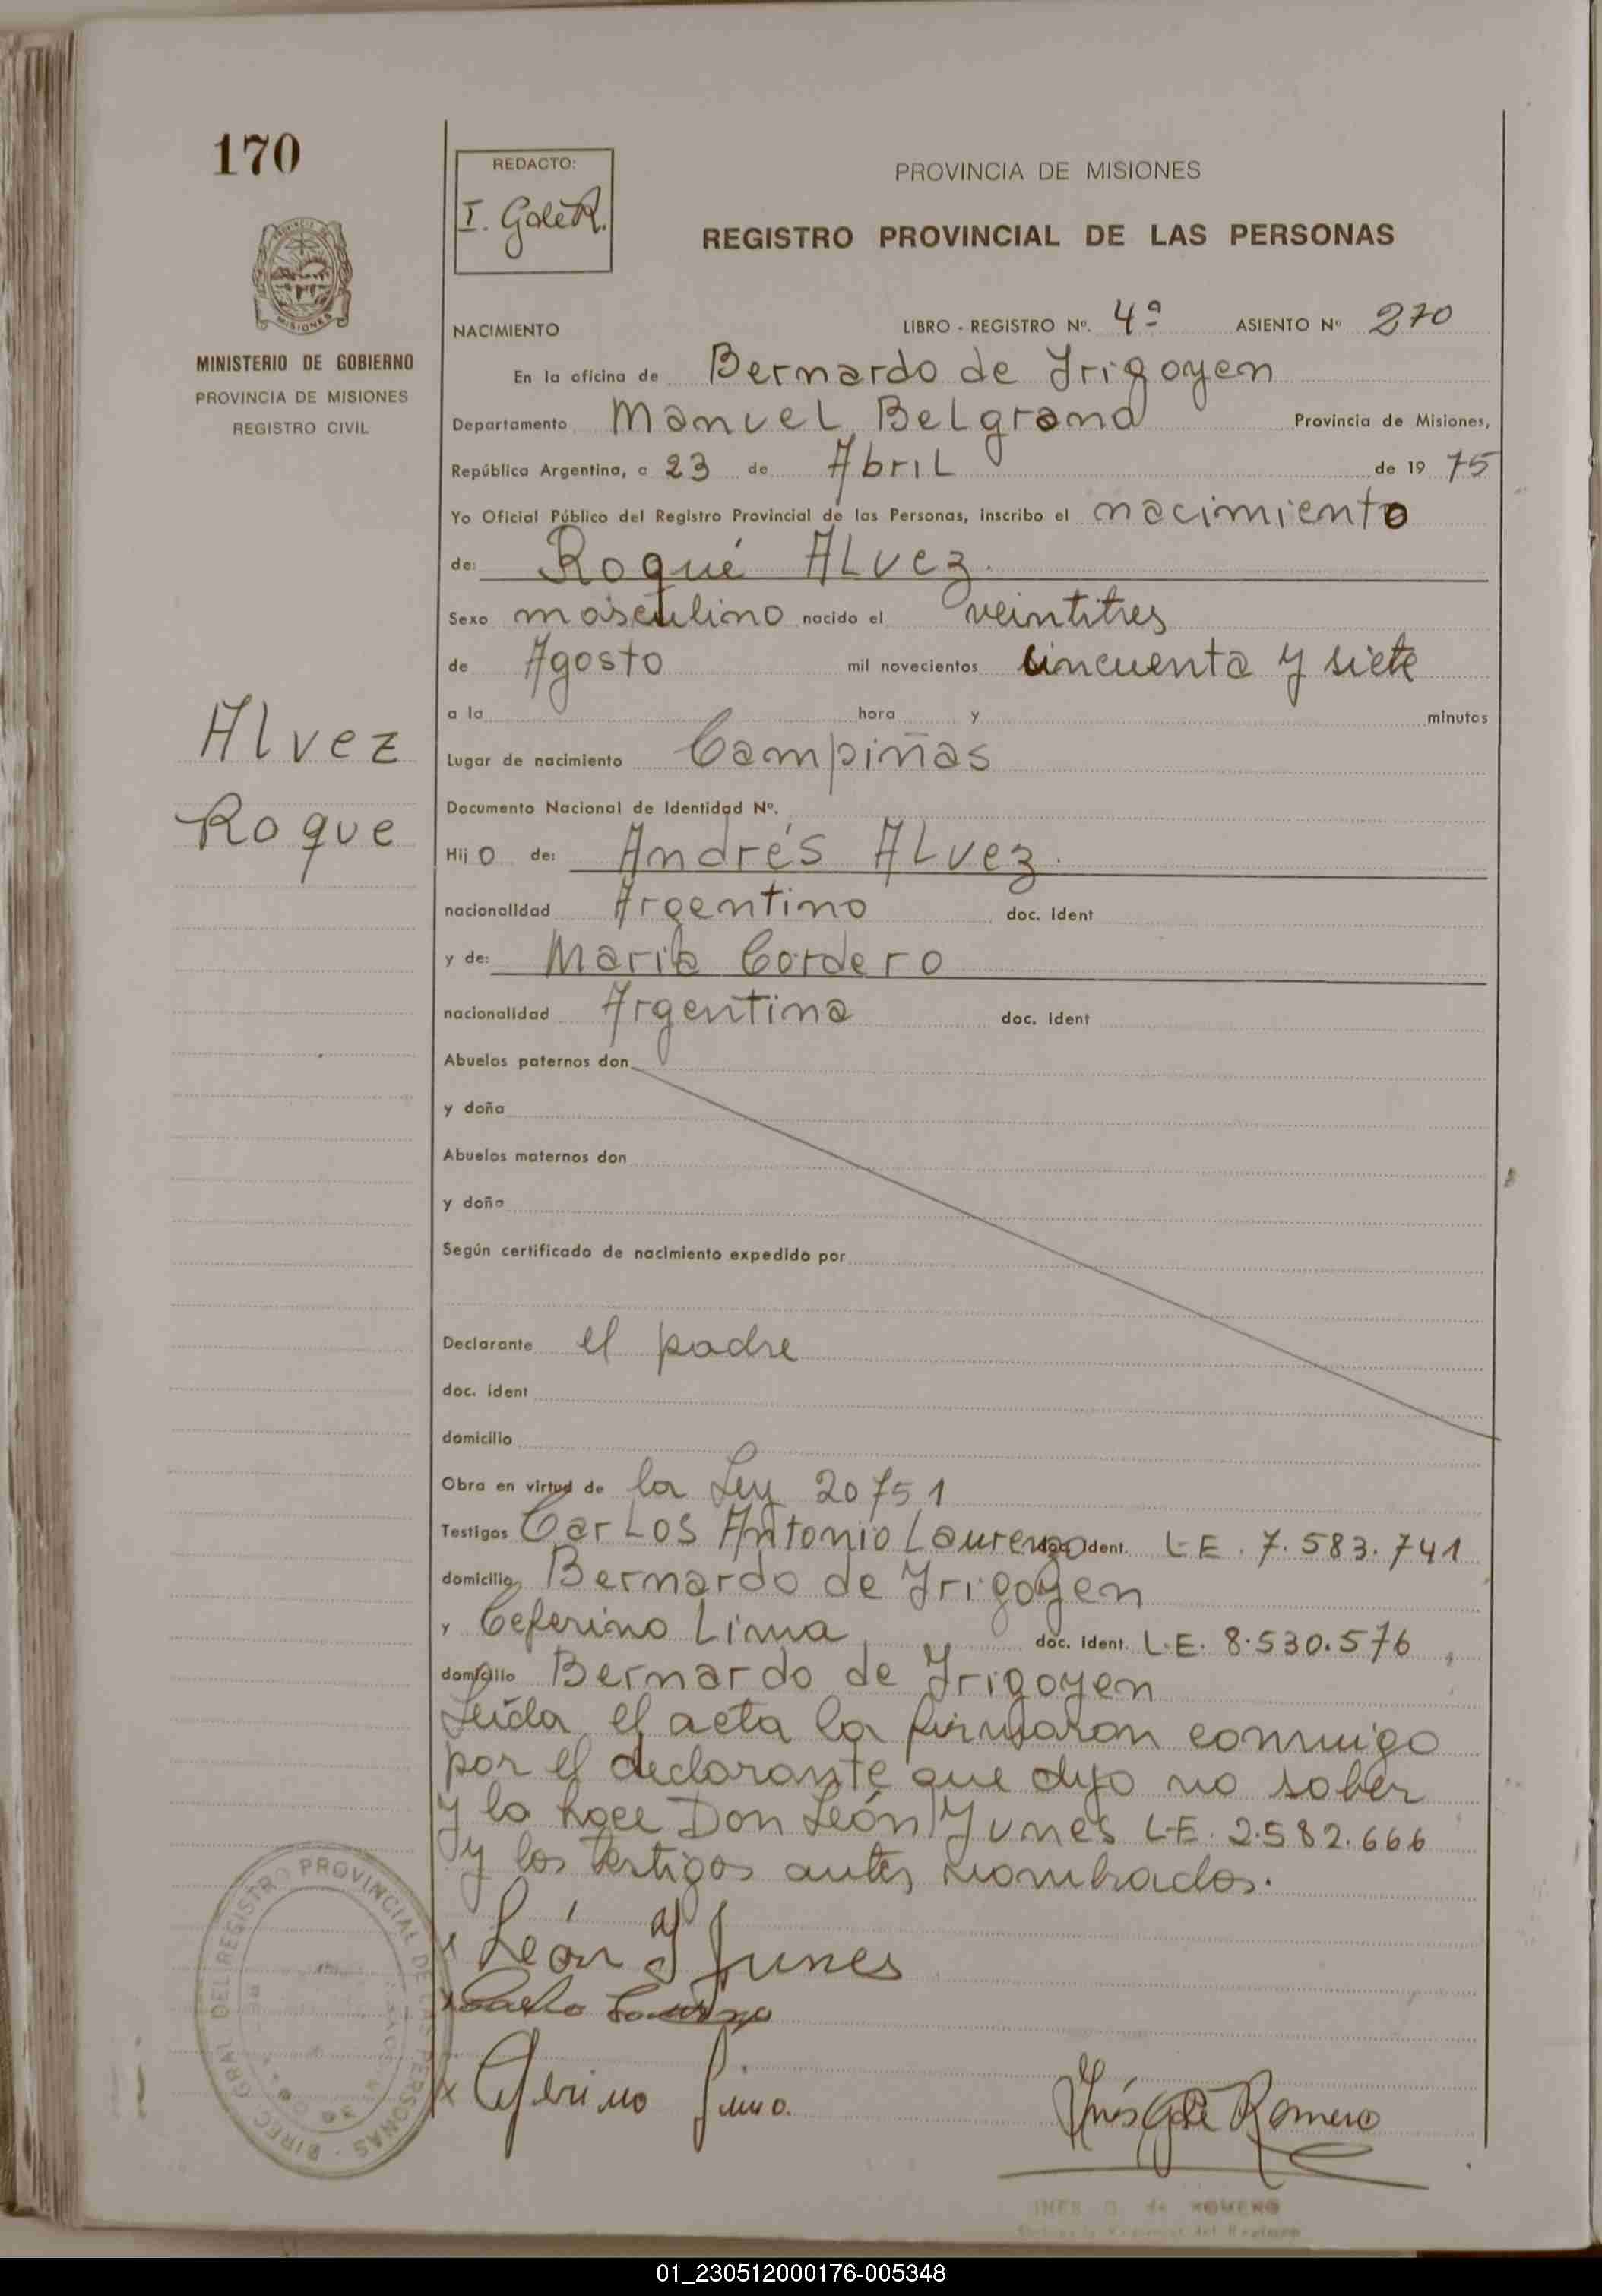 170
REDACTO:
I. Galé R.
PROVINCIA DE MISIONES
REGISTRO PROVINCIAL DE LAS PERSONAS
MISIONES
MINISTERIO DE GOBIERNO
PROVINCIA DE MISIONES
REGISTRO CIVIL
NACIMIENTO LIBRO - REGISTRO Nº. 4º ASIENTO Nº 270
En la oficina de Bernardo de Yrigoyen
Departamento Manuel Belgrano Provincia de Misiones,
República Argentina, a 23 de Abril de 1975
Yo Oficial Público del Registro Provincial de las Personas, inscribo el nacimiento
de: Roqué Alvez.
Sexo masculino nacido el veintitres
de Agosto mil novecientos cincuenta y siete
a la hora y minutos
Alvez
Lugar de nacimiento Campiñas
Documento Nacional de Identidad Nº.
Roque
Hijo de: Andrés Alvez.
nacionalidad Argentino doc. Ident
y de: Maria Cordero
nacionalidad Argentina doc. Ident
Abuelos paternos don
y doña
Abuelos maternos don
y doña
Según certificado de nacimiento expedido por
Declarante el padre
doc. ident
domicilio
Obra en virtud de la Ley 20751
Testigos Carlos Antonio Laurenzo doc. Ident. L-E. 7.583.741
domicilio Bernardo de Yrigoyen
y Ceferino Lima doc. Ident. L.E. 8.530.576,
domicilio Bernardo de Yrigoyen
Leída el acta la firmaron conmigo
por el declarante que dijo no saber
y lo hace Don León Yunes L-E. 2.582.666
y los testigos antes nombrados.
León Y Junes
Ceferino Lima
Inés G. de Romero
DIREC. GRAL DEL REGISTRO PROVINCIAL DE LAS PERSONAS
INES G. de ROMERO
01_230512000176-005348